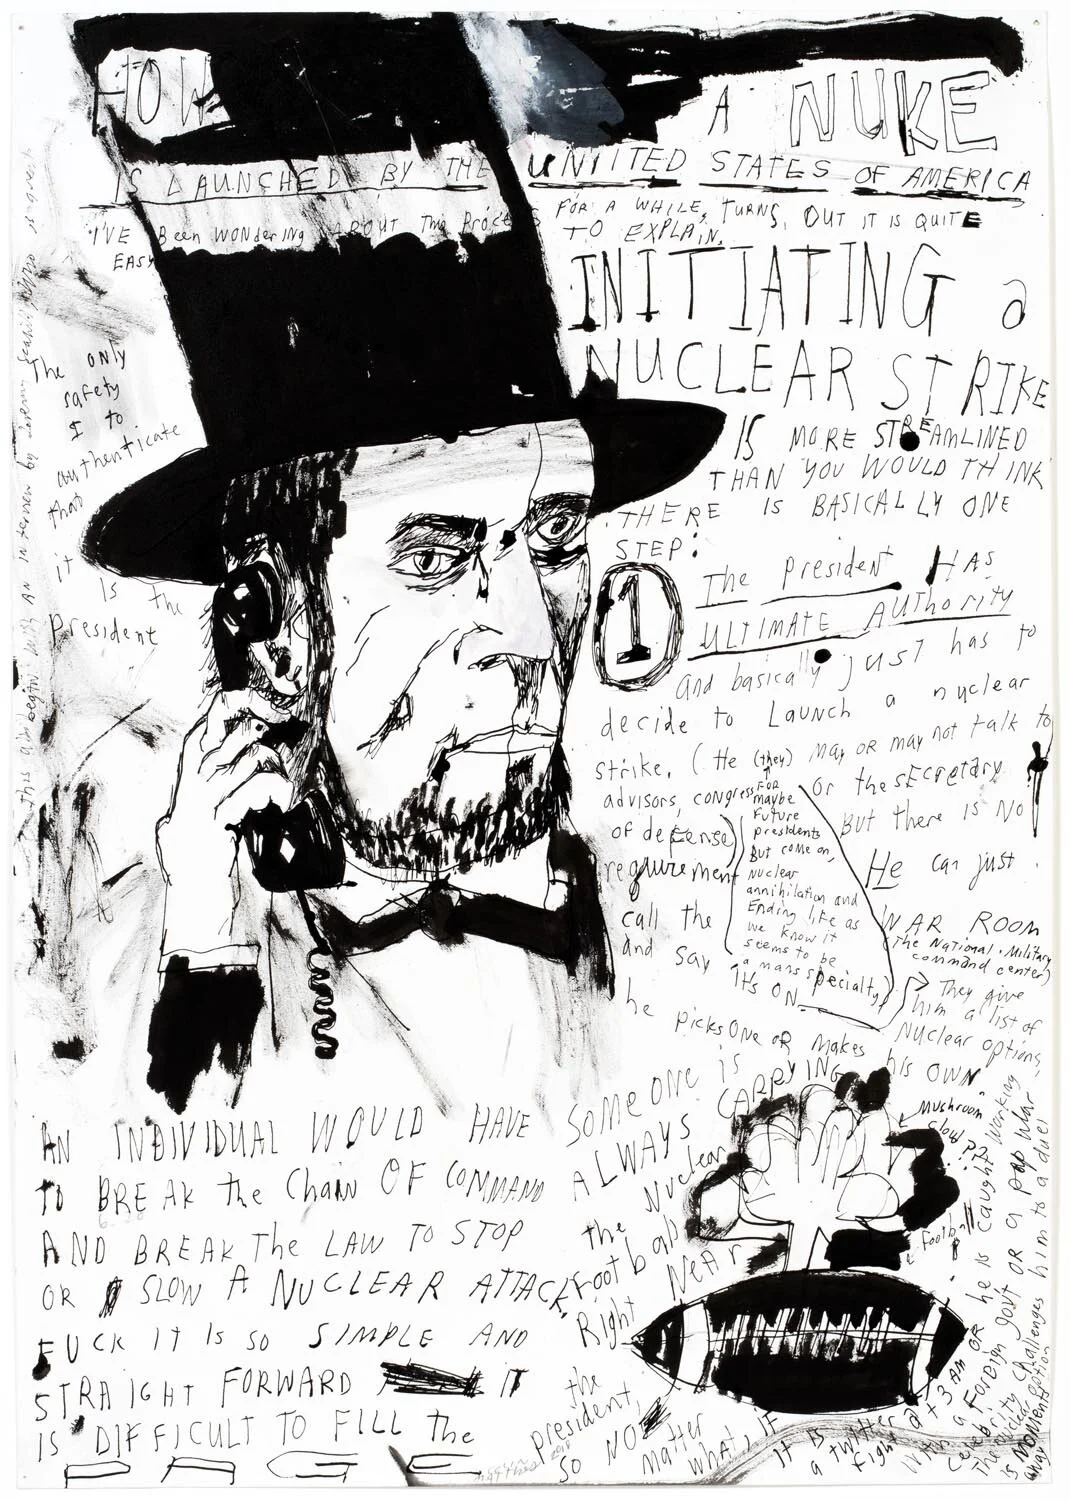 HOW
A NUKE
IS LAUNCHED BY THE UNITED STATES OF AMERICA
I'VE Been WONdering ABOUT This Process FOR A WHILE, TURNS, OUT IT IS QUITE
EASY TO EXPLAIN.
INITIATING a
NUCLEAR STRIKE
IS MORE STREAMLINED
THAN YOU WOULD THINK
THERE IS BASICALLY ONE
STEP:
1
The president HAS
ULTIMATE AUTHority
and basically just has to
decide to Launch a nuclear
strike. (He (they) may or may not talk to
advisors, congress or the sECretary
of defense) But there is No
requirement He can just
call the WAR ROOM
(The National Military
command center)
and say It's ON
FOR
maybe
Future
presidents
But come on,
Nuclear
annihilation and
Ending life as
we know it
seems to be
a mans specialty)
They give
him a list of
Nuclear options,
he picks One or makes his OWN
The only
safety
I to
authenticate
that
it is the
president
AN INDIVIDUAL WOULD HAVE
TO BREAK the Chain OF COMMAND
AND BREAK The LAW TO STOP
OR SLOW A NUCLEAR ATTACK
FUCK IT IS SO SIMPLE AND
STRAIGHT FORWARD IT
IS DIFFICULT TO FILL the
PAGE
SOMEONE IS
ALWAYS CARRYING
the Nuclear
Football
Right NEAR
the
president,
SO NO
matter
what, if
it is
a twitter
fight
at 3 AM OR he is caught working
with a Foreign govt OR a pop star
celebrity challenges him to a duel
The nuclear option
is moments
away
Mushroom
Cloud??
Football